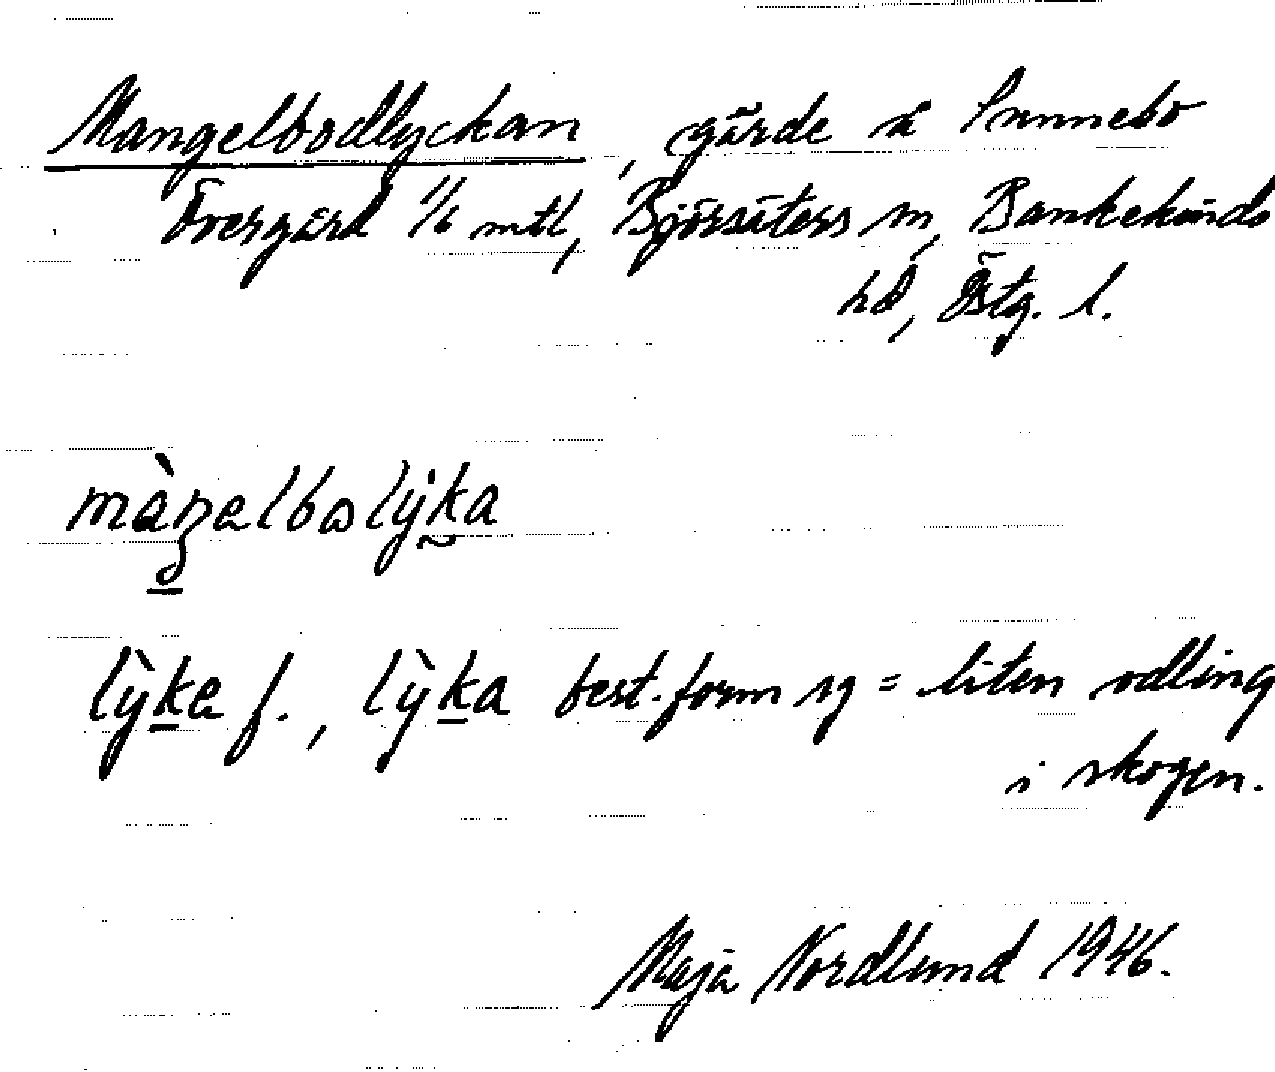 Mangelbodlyckan, gärde å Sunnebo
Övergård 1/6 mtl, Björsäters sn, Bankekinds
hd, Östg. l.
màŋəlbωlẏka
lỳkə f., lỳka best. form sg = liten odling
i skogen.
Maja Nordlund 1946.